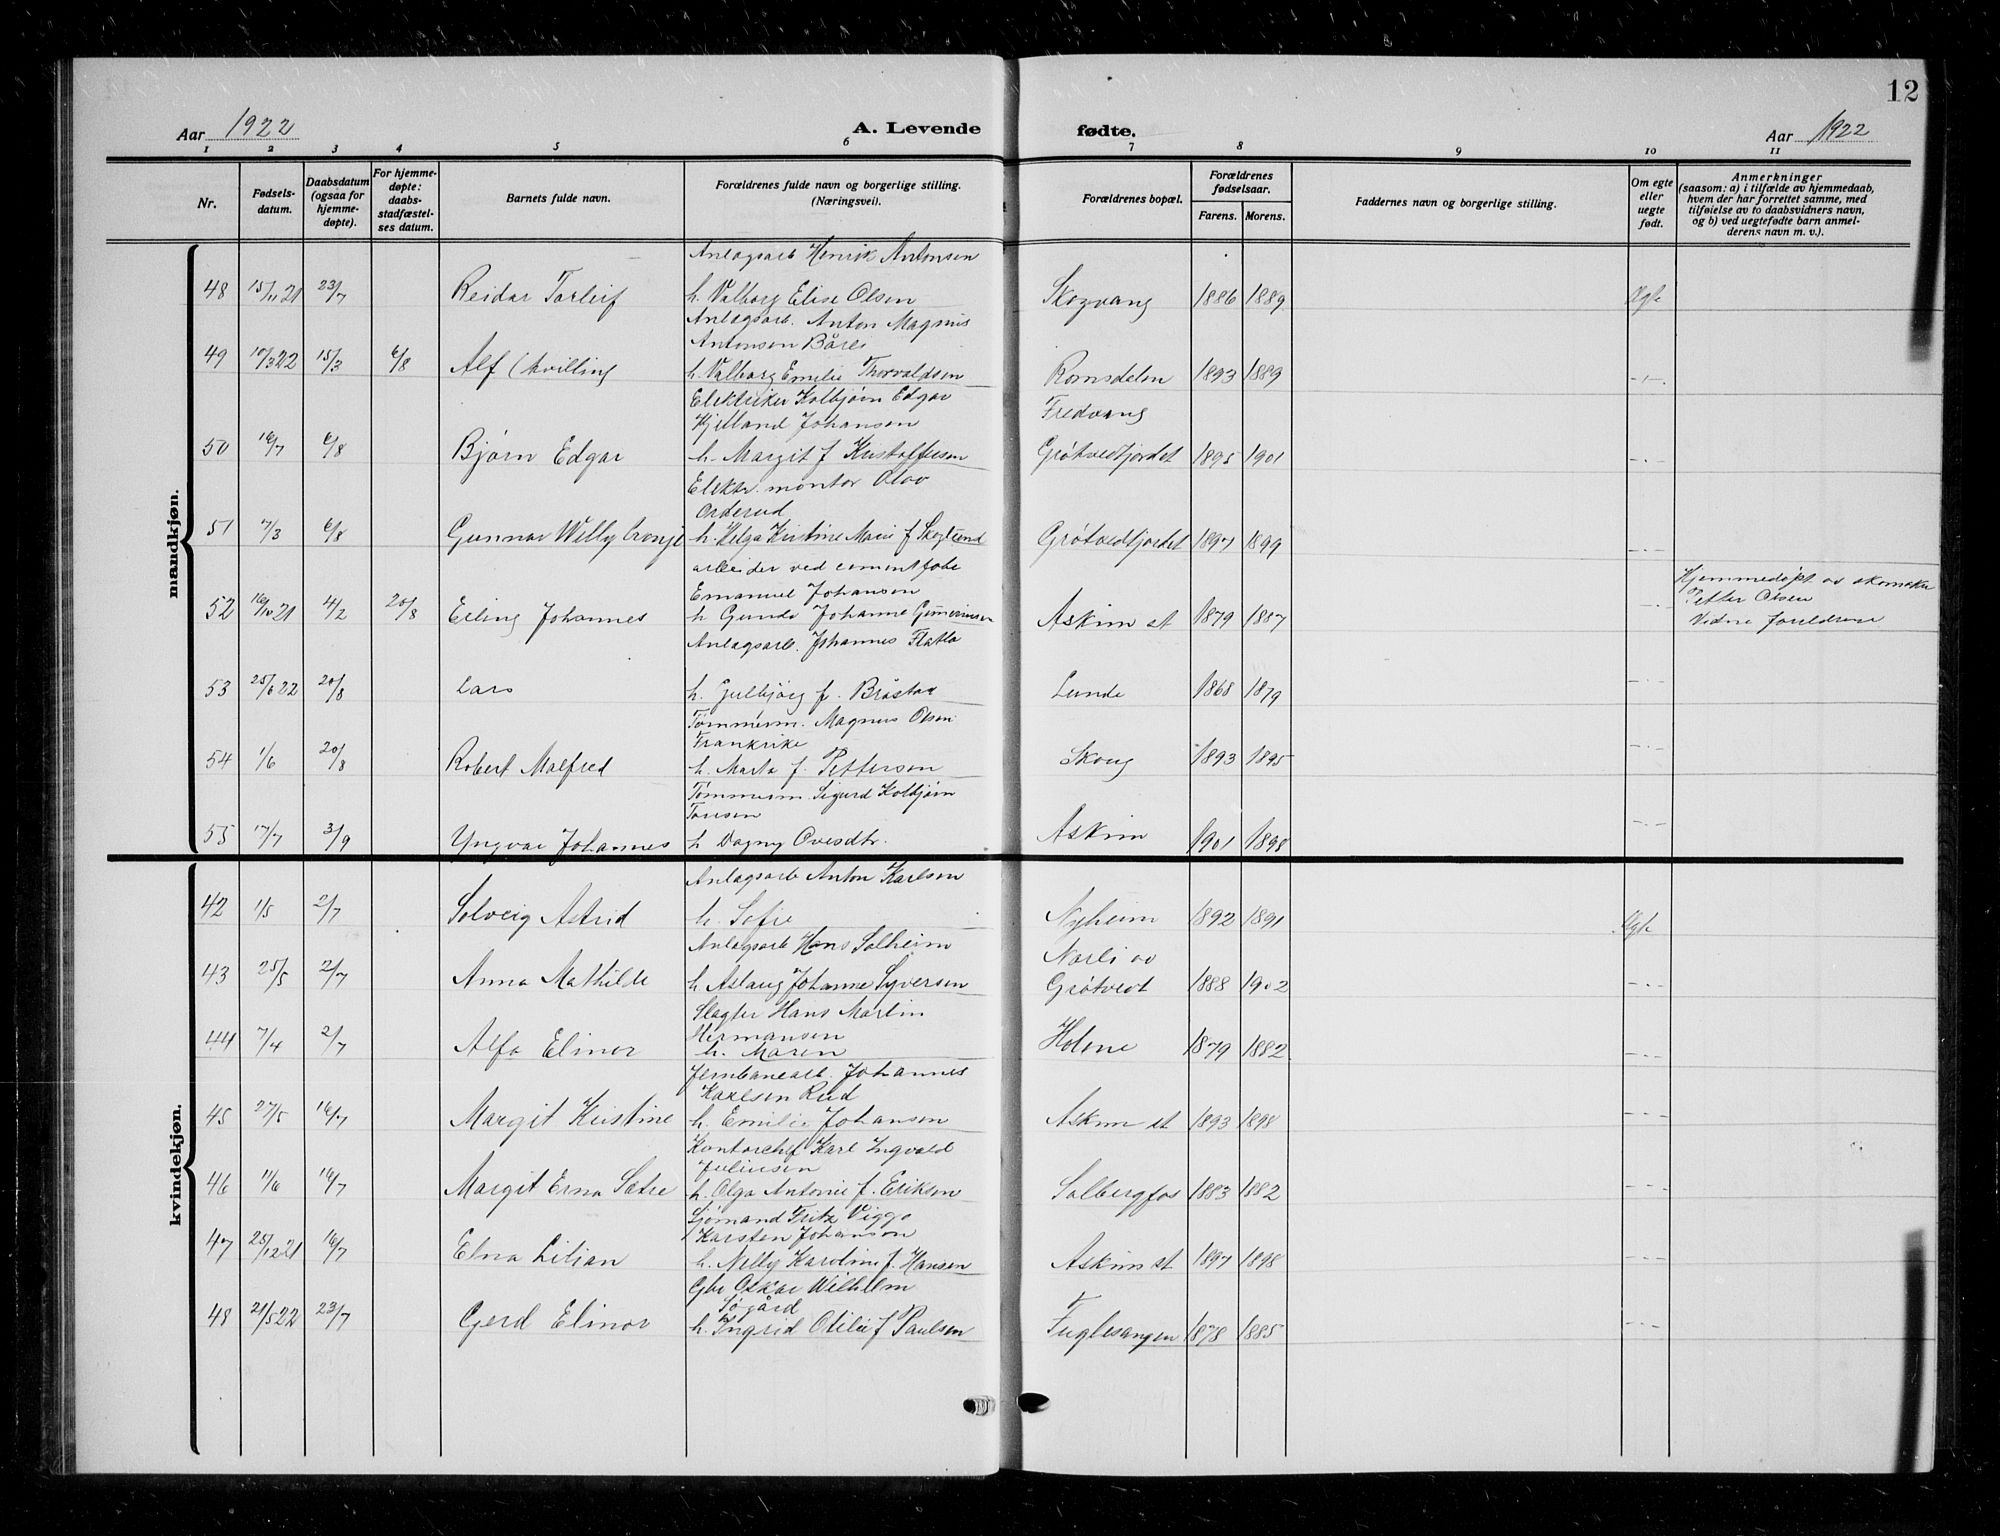 12
Aar 1922
A. Levende fødte.
Aar 1922
1 2 3 4 5 6 7 8 9 10 11
Nr.
Fødselsdatum.
Daabsdatum (ogsaa for hjemmedøpte).
For hjemmedøpte: daabsstadfæstelses datum.
Barnets fulde navn.
Forældrenes fulde navn og borgerlige stilling. (Næringsvei).
Forældrenes bopæl.
Forældrenes fødselsaar.
Farens. Morens.
Faddernes navn og borgerlige stilling.
Om egte eller uegte født.
Anmerkninger
(saasom: a) i tilfælde av hjemmedaab,
hvem der har forrettet samme, med
tilføielse av to daabsvidners navn,
og b) ved uegtefødte barn anmelderens navn m. v.).
mandkjøn.
Anlægsarb Henrik Antonsen
48 15/11 21 23/7 Reidar Torleif h. Valborg Elise Olsen Skogvang 1886 1889 Ægte
Anlægsarb. Anton Magnus
Antonsen
49 10/3 22 15/3 6/8 Alf (tvilling h. Valborg Emilie Thorvaldsen Romsdalen 1893 1889 - - -
Elektriker Kolbjørn Edgar
Kjelland Johansen Fredvang
50 16/7 6/8 Bjørn Edgar h. Margit f Kristoffersen Grøtvedtjordet 1895 1901 - - -
Elektr. montør Olav
Orderud
51 7/3 6/8 Gunnar Willy h. Helga Kristine Marie f Skoglund Grøtvedtjordet 1897 1899 - - -
arbeider ved cementfabr
Emanuel Johansen
52 16/10 21 4/2 20/8 Erling Johannes h Gunda Johanne Askim st 1879 1887 - - -
Hjemmedøpt av skomaker
Petter Olsen
Vidne foreldrene
Anlægsarb. Johannes Flatla
53 25/6 22 20/8 Lars h. Gulbjørg f. Lunde 1868 1879 - - -
Tømmerm. Magnus Olsen
Frankrike
54 1/6 20/8 Robert Malfred h. Marta f. Pettersen Skoug 1893 1895 - - -
Tømmerm. Sigurd Kolbjørn
55 17/7 3/9 Yngvar Johannes h Dagny Ovesdtr. Askim 1901 1898 - - -
kvindekjøn.
Anlægsarb Anton Karlsen
42 1/5 2/7 Solveig Astrid h. Sofie Nyheim 1892 1891 Ægte
Anlægsarb Hans Solheim Narli av
43 25/5 2/7 Anna Mathilde h Aslaug Johanne Syversen Grøtvedt 1888 1902 - - -
Slagter Hans Martin
Hermansen
44 7/4 2/7 Alfa Elinor h. Maren 1879 1882 - - -
Jernbanearb. Johannes
Karlsen Rud
45 27/5 16/7 Margit Kristine h. Emilie Johansen Askim st 1893 1898 - - -
Kontorchef Karl Ingvald
Juliussen
46 11/6 16/7 Margit Erna Sætre h. Olga Antonie f. Eriksen Solbergfos 1883 1882 - - -
Sjømand Fritz Viggo
Karsten Johansen
47 25/12 21 16/7 Elna Lilian h. Nelly Karoline f. Hansen Askim st 1897 1898 - - -
Gbr Oskar Wilhelm
Søgård
48 21/5 22 23/7 Gerd Elinor h. Ingrid Otilie f Paulsen Fuglesangen 1878 1885 - - -